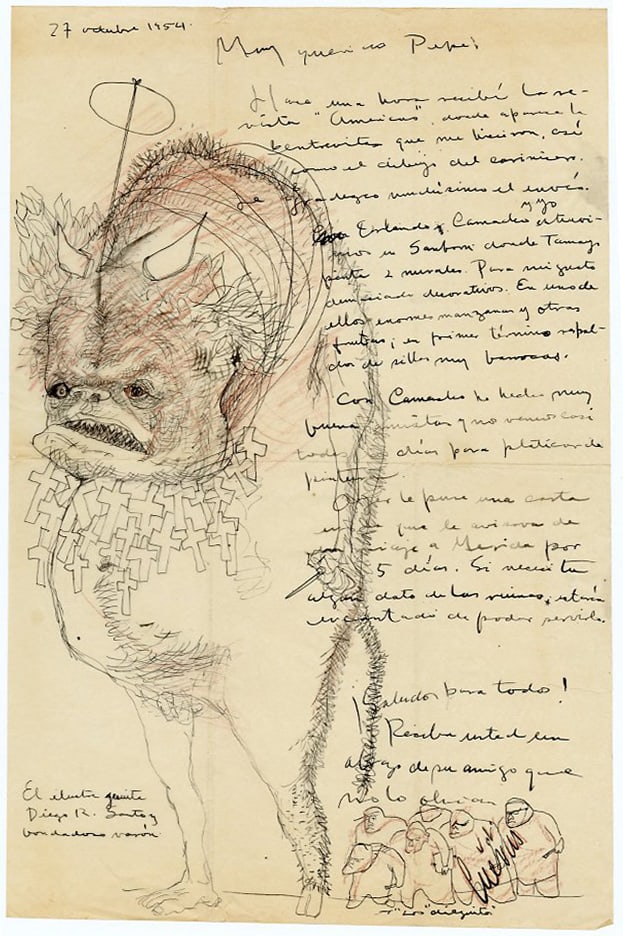 27 octubre 1954.
Muy querido Pepe:
Hace una hora recibí la re-
vista "Americas", donde aparece la
entrevista que me hicieron, así
como el dibujo del carnicero.
Le agradezco muchísimo el envío.
Erlando, Camacho y yo estuvi-
mos en Sanborns donde Tamayo
pinta 2 murales. Para mi gusto
demasiado decorativos. En uno de
ellos enormes manzanas y otras
frutas; en primer término respal-
dos de sillas muy barrocas.
Con Camacho he hecho muy
buena amistad y nos vemos casi
todos días para platicar de
pintura.
Ayer le puse una carta
en que le avisaba de
viaje a Merida por
5 días. Si necesita
algún dato de las ruinas, estaría
encantado de poder servirle.
¡Saludos para todos!
Reciba usted un
abrazo de su amigo que
no lo olvida
Cuevas
El ilustre
Diego R. Santo y
bondadoso varón.
"Los dieguitos"